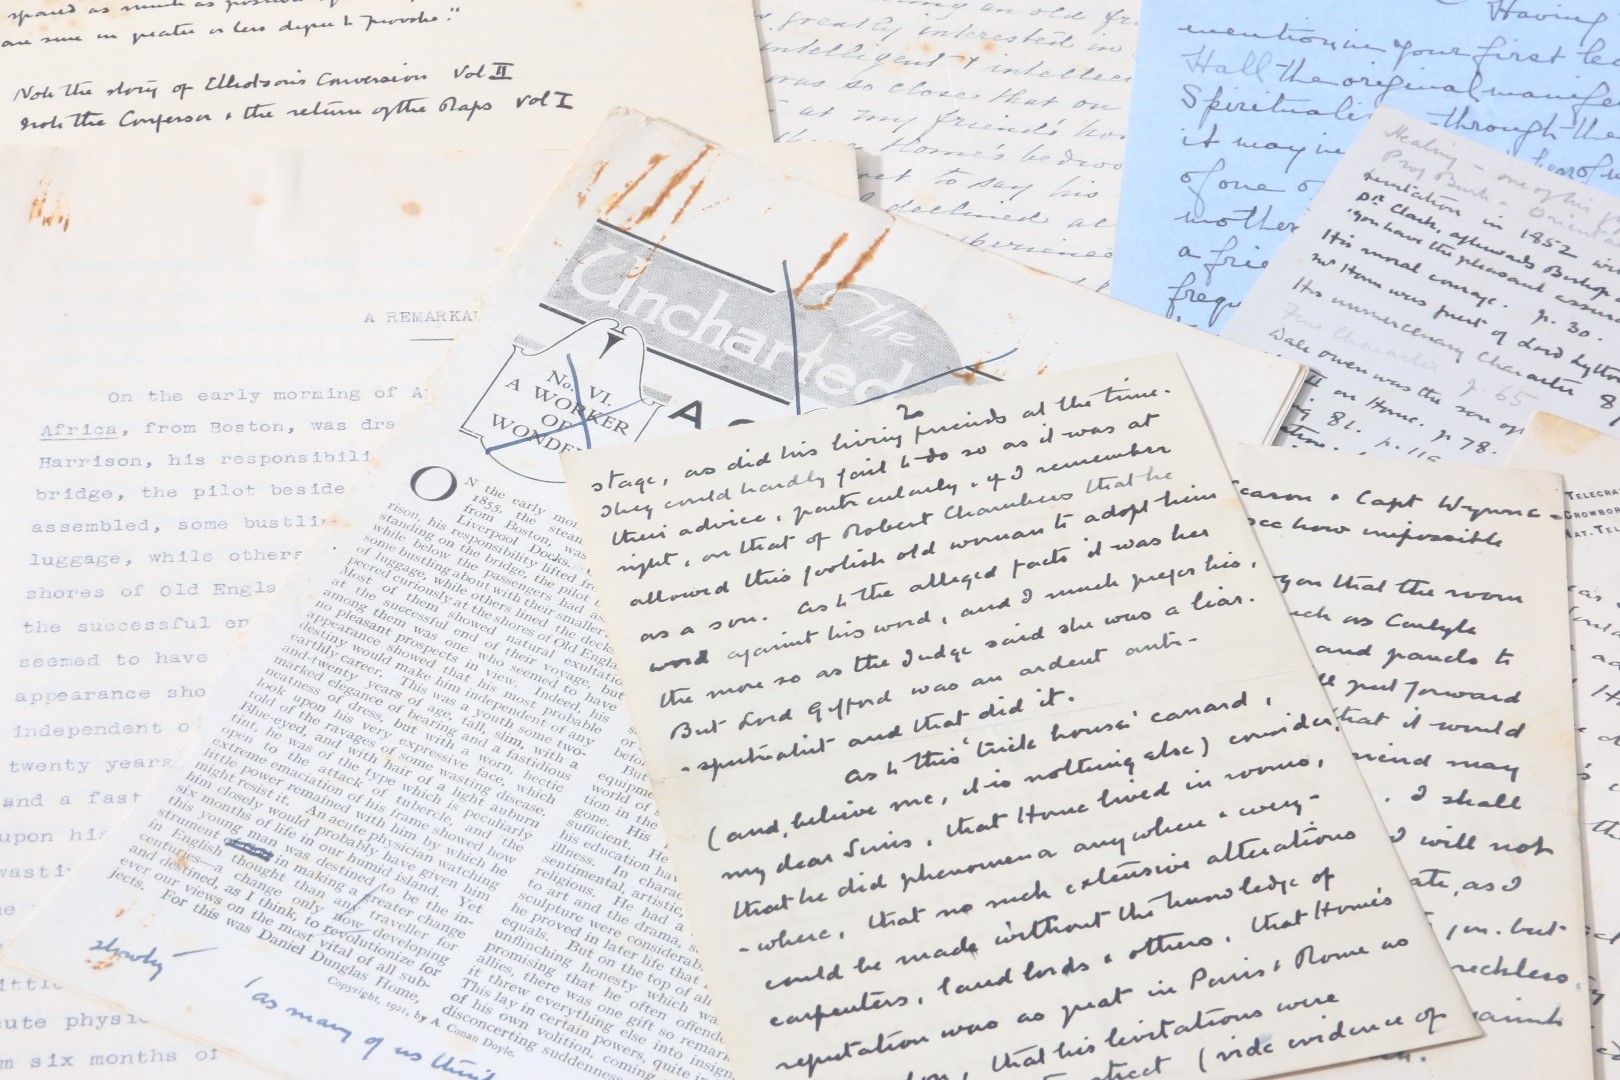 are sure in greater or less degree to provoke."
Note the story of Elliotson's Conversion Vol II
Note the Confessor & the return of the Raps Vol I
an old fr
greatly interested in
intelligent & intellec
was so close that on
at my friend's hou
Home's bedroo
to say his
declined at
Having
mention in your first lec
Hall the original manife
Spirituali through the
it may in
of one o
mother
a frie
frequ
Healing - one of his
tentation in 1852
Dr Clark, afterwards Bishop
"you have the pleasant assura
His moral courage. p. 30.
Mr Home was guest of Lord Lytton
His unmercenary Character 8
p. 65
Dale Owen was the son of
II on Home. p 78.
81. p. 116
A REMARKA
On the early morning of A
Africa, from Boston, was dra
Harrison, his responsibili
bridge, the pilot beside
assembled, some bustlin
luggage, while others
shores of Old Engla
the successful en
seemed to have
appearance sho
independent o
twenty years
and a fast
upon his
wasti
ittle
cute physic
m six months of
The
Uncharted
No. VI.
A WORKER
OF
WONDE
ON the early mor
1855, the steam
from Boston, was
Liverpool Docks.
rison, his responsibility lifted fr
standing on the bridge, the pilot
while below the passengers had as
some bustling about with their smaller
of luggage, while others lined the deck
peered curiously at the shores of Old Engla
Most of them showed natural exultatio
at the successful end of their voyage, but
among them was one who seemed to have
no pleasant prospects in view. Indeed, his
appearance showed that his most probable
destiny would make him independent of any
earthly career. This was a youth some two-
and-twenty years of age, tall, slim, with a
marked elegance of bearing and a fastidious
neatness of dress, but with a worn, hectic
look upon his very expressive face, which
told of the ravages of some wasting disease.
Blue-eyed, and with hair of a light auburn
tint, he was of the type which is peculiarly
open to the attack of tubercle, and the
extreme emaciation of his frame showed how
little power remained with him by which he
might resist it. An acute physician watching
him closely would probably have given him
six months of life in our humid island. Yet
this young man was destined to be the in-
strument in making a greater change
in English thought than any traveller for
centuries—a change only now developing
and destined, as I think, to revolutionize for
ever our views on the most vital of all sub-
jects.
For this was Daniel Dunglas Home,
Copyright, 1921, by A. Conan Doyle.
slowly
(as many of us think
or
before
But
equipme
world of
tion in the
gone. His
sufficient. He
his education ha
illness. In charac
sentimental, artistic,
religious. He had a
to art and the drama, s
sculpture were considera
he proved in later life that
equals. But on the top of all
unflinching honesty which wa
promising that he often offende
allies, there was one gift so remark
it threw everything else into insign
This lay in certain powers, quite i
of his own volition, coming
disconcerting suddenness
2
stage, as did his living friends at the time.
They could hardly fail to do so as it was at
their advice, particularly, if I remember
right, on that of Robert Chambers that he
allowed this foolish old woman to adopt him
as a son. As to the alleged facts it was her
word against his word, and I much prefer his,
the more so as the Judge said she was a liar.
But Lord Gifford was an ardent anti-
-spiritualist and that did it.
As to this 'trick house' canard,
(and, believe me, it is nothing else) consider,
my dear Sirris, that Home lived in rooms,
that he did phenomena anywhere & every-
-where, that no such extensive alterations
could be made without the knowledge of
carpenters, landlords & others, that Home's
reputation was as great in Paris & Rome as
that his levitations were
street (vide evidence of
& Capt Wynne -
see how impossible
you that the room
such as Carlyle
and panels to
put forward
that it would
friend may
. I shall
I will not
ate, as I
but
reckless
TELEGRA
CROWBOR
NAT. TEL